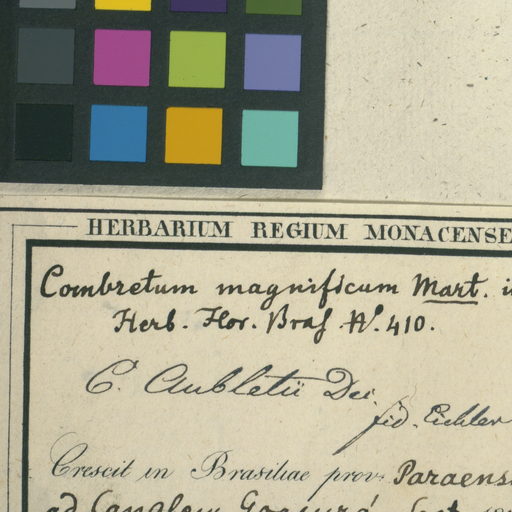 HERBARIUM REGIUM MONACENSE
Combretum magnificum Mart.
Herb. Flor. Bras. No. 410.
C. Aubletii Dec.
fid. Eichler
Crescit in Brasiliae prov. Paraens
ad